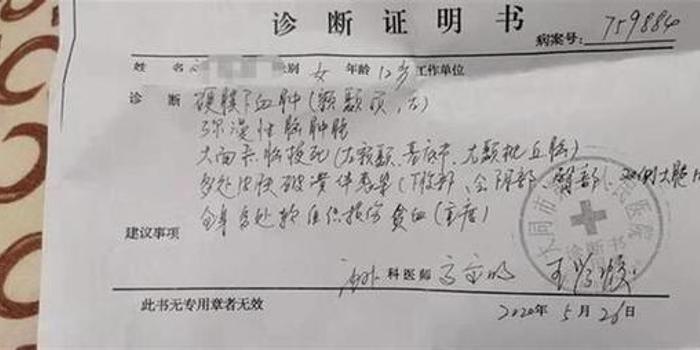 诊断证明书
病案号：759884
姓名 性别 女 年龄 12岁 工作单位
诊断 硬膜下血肿（额颞顶，左）
弥漫性脑肿胀
大面积脑梗死（左额颞、基底节、左颞枕丘脑）
多处皮肤破溃伴感染（下腹部、会阴部、臀部、双侧大腿
全身多处软组织损伤 贫血（重度）
建议事项
大同市 民医院
诊断书
科医师
此书无专用章者无效 2020年5月26日